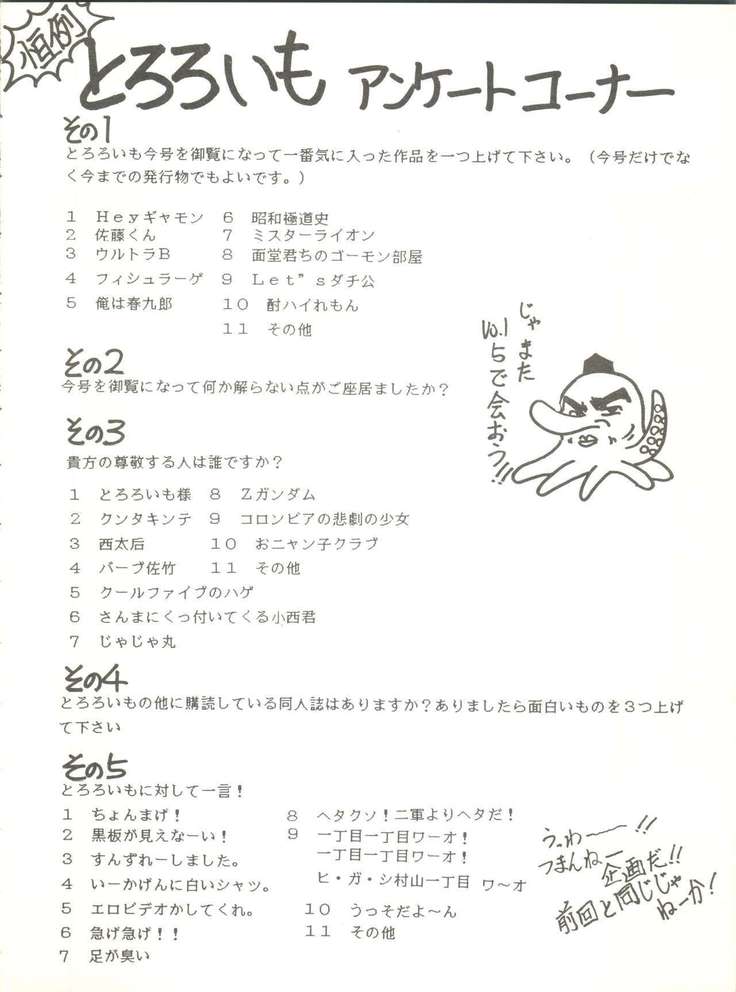 恒例
とろろいも アンケートコーナー
その1
とろろいも今号を御覧になって一番気に入った作品を一つ上げて下さい。(今号だけでな
く今までの発行物でもよいです。)
1 Heyギャモン 6 昭和極道史
2 佐藤くん 7 ミスターライオン
3 ウルトラB 8 面堂君ちのゴーモン部屋
4 フィシュラーゲ 9 Let”sダチ公
5 俺は春九郎 10 酎ハイれもん
11 その他
じゃまた
Vo.l
5で会おう!!
その2
今号を御覧になって何か解らない点がご座居ましたか?
その3
貴方の尊敬する人は誰ですか?
1 とろろいも様 8 Zガンダム
2 クンタキンテ 9 コロンビアの悲劇の少女
3 西太后 10 おニャン子クラブ
4 バーブ佐竹 11 その他
5 クールファイブのハゲ
6 さんまにくっ付いてくる小西君
7 じゃじゃ丸
その4
とろろいもの他に購読している同人誌はありますか?ありましたら面白いものを3つ上げ
て下さい
その5
とろろいもに対して一言!
1 ちょんまげ!
2 黒板が見えなーい!
3 すんずれーしました。
4 いーかげんに白いシャツ。
5 エロビデオかしてくれ。
6 急げ急げ!!
7 足が臭い
8 ヘタクソ!二軍よりヘタだ!
9 一丁目一丁目ワーオ!
一丁目一丁目ワーオ!
ヒ・ガ・シ村山一丁目 ワ~オ
10 うっそだよ~ん
11 その他
うっわ~~!!
つまんねー
企画だ!!
前回と同じじゃ
ねーか!